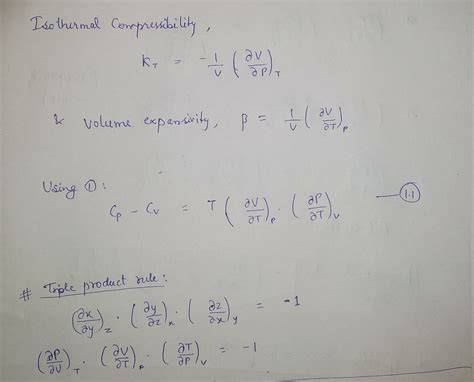 Isothermal Compressibility,
K_T = -1/V (∂V/∂P)_T
& volume expansivity, β = 1/V (∂V/∂T)_P
Using ①:
C_P - C_V = T (∂V/∂T)_P · (∂P/∂T)_V — (1.1)
# Triple product rule:
(∂x/∂y)_z · (∂y/∂z)_x · (∂z/∂x)_y = -1
(∂P/∂V)_T · (∂V/∂T)_P · (∂T/∂P)_V = -1